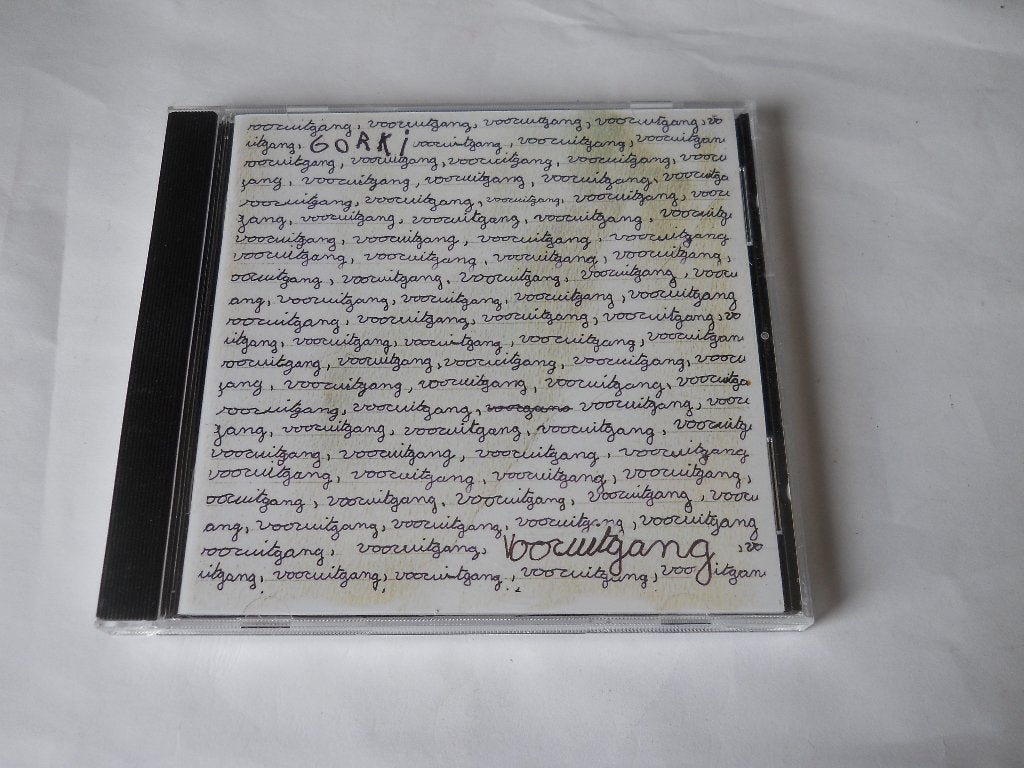 vooruitgang, vooruitgang, vooruitgang, vooruitgang, vo
uitgang, GORKi vooruitgang, vooruitgang, vooruitgan
vooruitgang, vooruitgang, vooruitgang, vooruitgang, vooru
gang, vooruitgang, vooruitgang, vooruitgang, vooruitga
vooruitgang, vooruitgang, vooruitgang, vooruitgang, vooru
gang, vooruitgang, vooruitgang, vooruitgang, vooruitg
vooruitgang, vooruitgang, vooruitgang, vooruitgang
vooruitgang, vooruitgang, vooruitgang, vooruitgang,
ooruitgang, vooruitgang, vooruitgang, vooruitgang, vooru
ang, vooruitgang, vooruitgang, vooruitgang, vooruitgang
vooruitgang, vooruitgang, vooruitgang, vooruitgang, vo
uitgang, vooruitgang, vooruitgang, vooruitgang, vooruitgan
vooruitgang, vooruitgang, vooruitgang, vooruitgang, vooru
gang, vooruitgang, vooruitgang, vooruitgang, vooruitga
vooruitgang, vooruitgang, voorgang vooruitgang, vooru
gang, vooruitgang, vooruitgang, vooruitgang, vooruitg
vooruitgang, vooruitgang, vooruitgang, vooruitgang
vooruitgang, vooruitgang, vooruitgang, vooruitgang,
ooruitgang, vooruitgang, vooruitgang, vooruitgang, vooru
ang, vooruitgang, vooruitgang, vooruitgang, vooruitgang
vooruitgang, vooruitgang, Vooruitgang, vo
uitgang, vooruitgang, vooruitgang, vooruitgang, vooruitgan